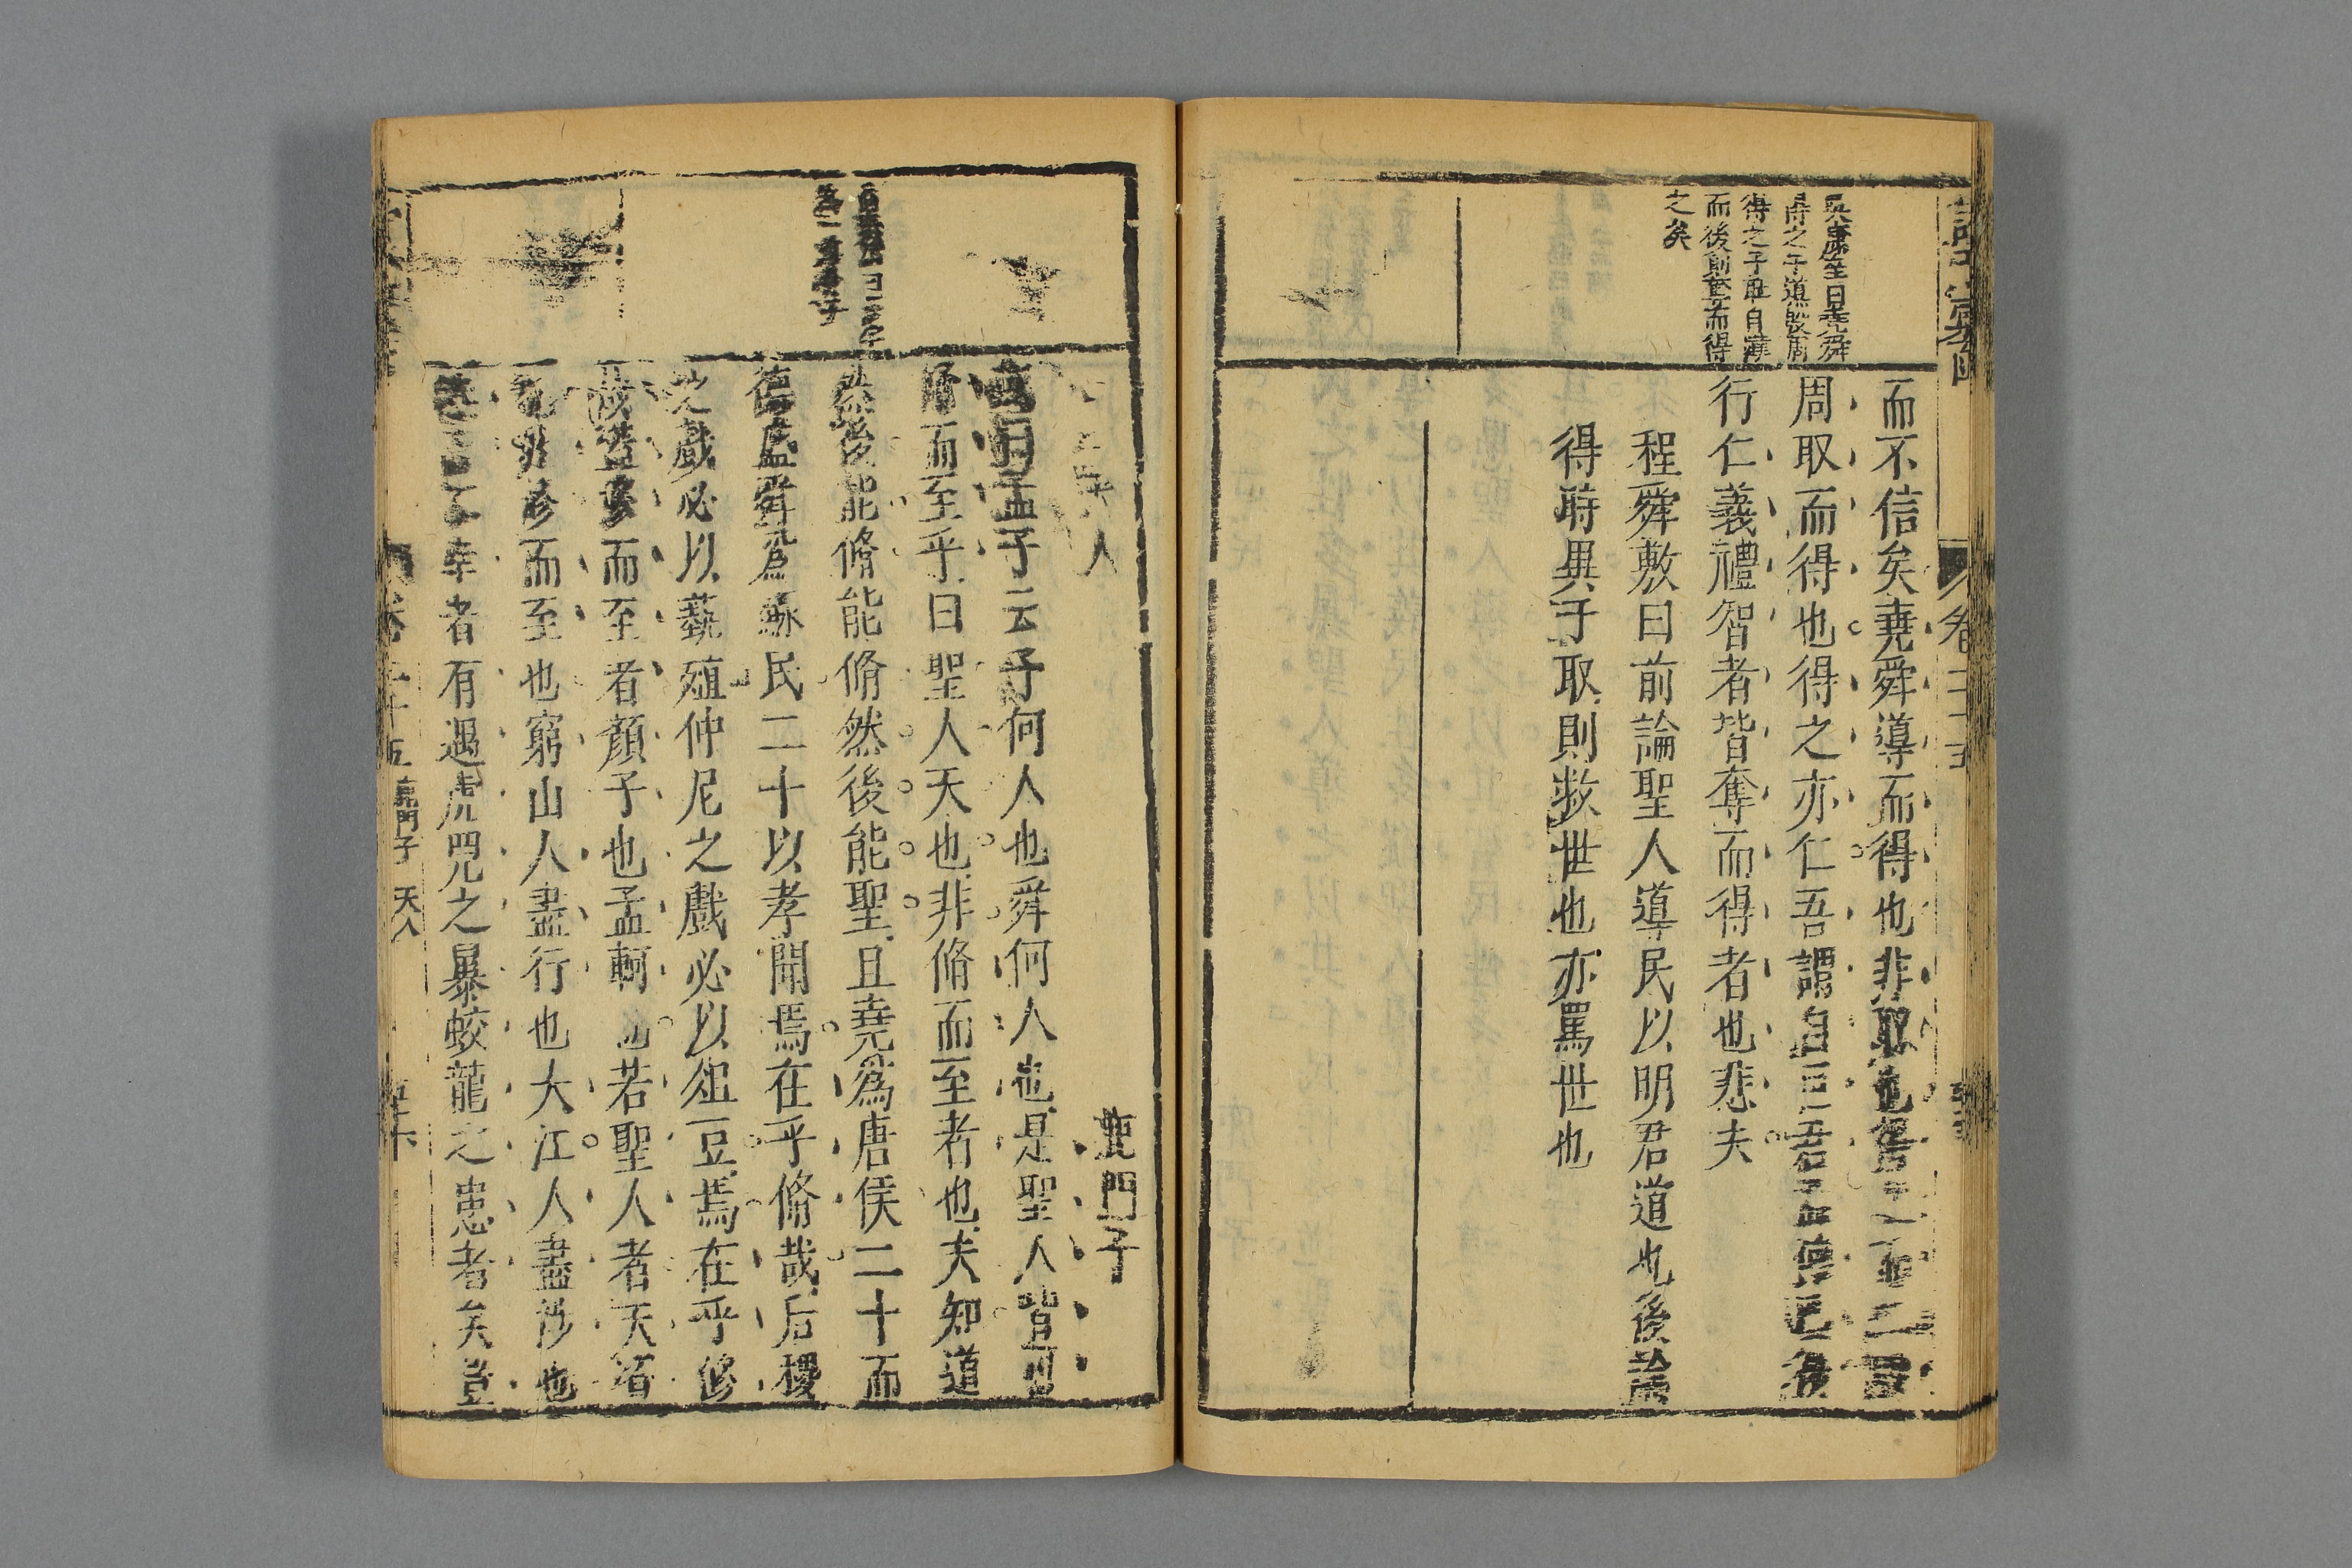 而不信矣堯舜導而得也非取也得之而仁
周取而得也得之亦仁吾謂自巨君孟德已後
行仁義禮智者皆奪而得者也悲夫
程舜敷曰前論聖人導民以明君道也後論
得時異于取則救世也亦罵世也
得之于道殷周
得之于取自漢
而後則奪而得
之矣
卷二十五
鹿門子
人
或曰孟子云予何人也舜何人也是聖人皆可
脩而至乎曰聖人天也非脩而至者也夫知道
然後能脩能脩然後能聖且堯爲唐侯二十而
德盛舜爲鰥民二十以孝聞焉在乎脩哉后稷
之戲必以藝殖仲尼之戲必以俎豆焉在乎修
哉蓋修而至者顏子也孟軻也若聖人者天資
也非修而至也窮山人盡行也大江人盡涉也
不幸者有遇虎兕之暴蛟龍之患者矣豈
鹿門子 天人